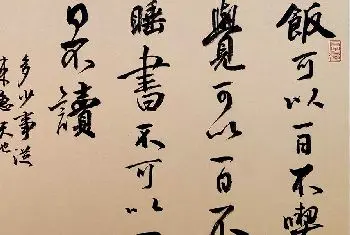 飯可以一日不喫
覺可以一日不
睡書不可以一
日不讀
多少事從
来急天也